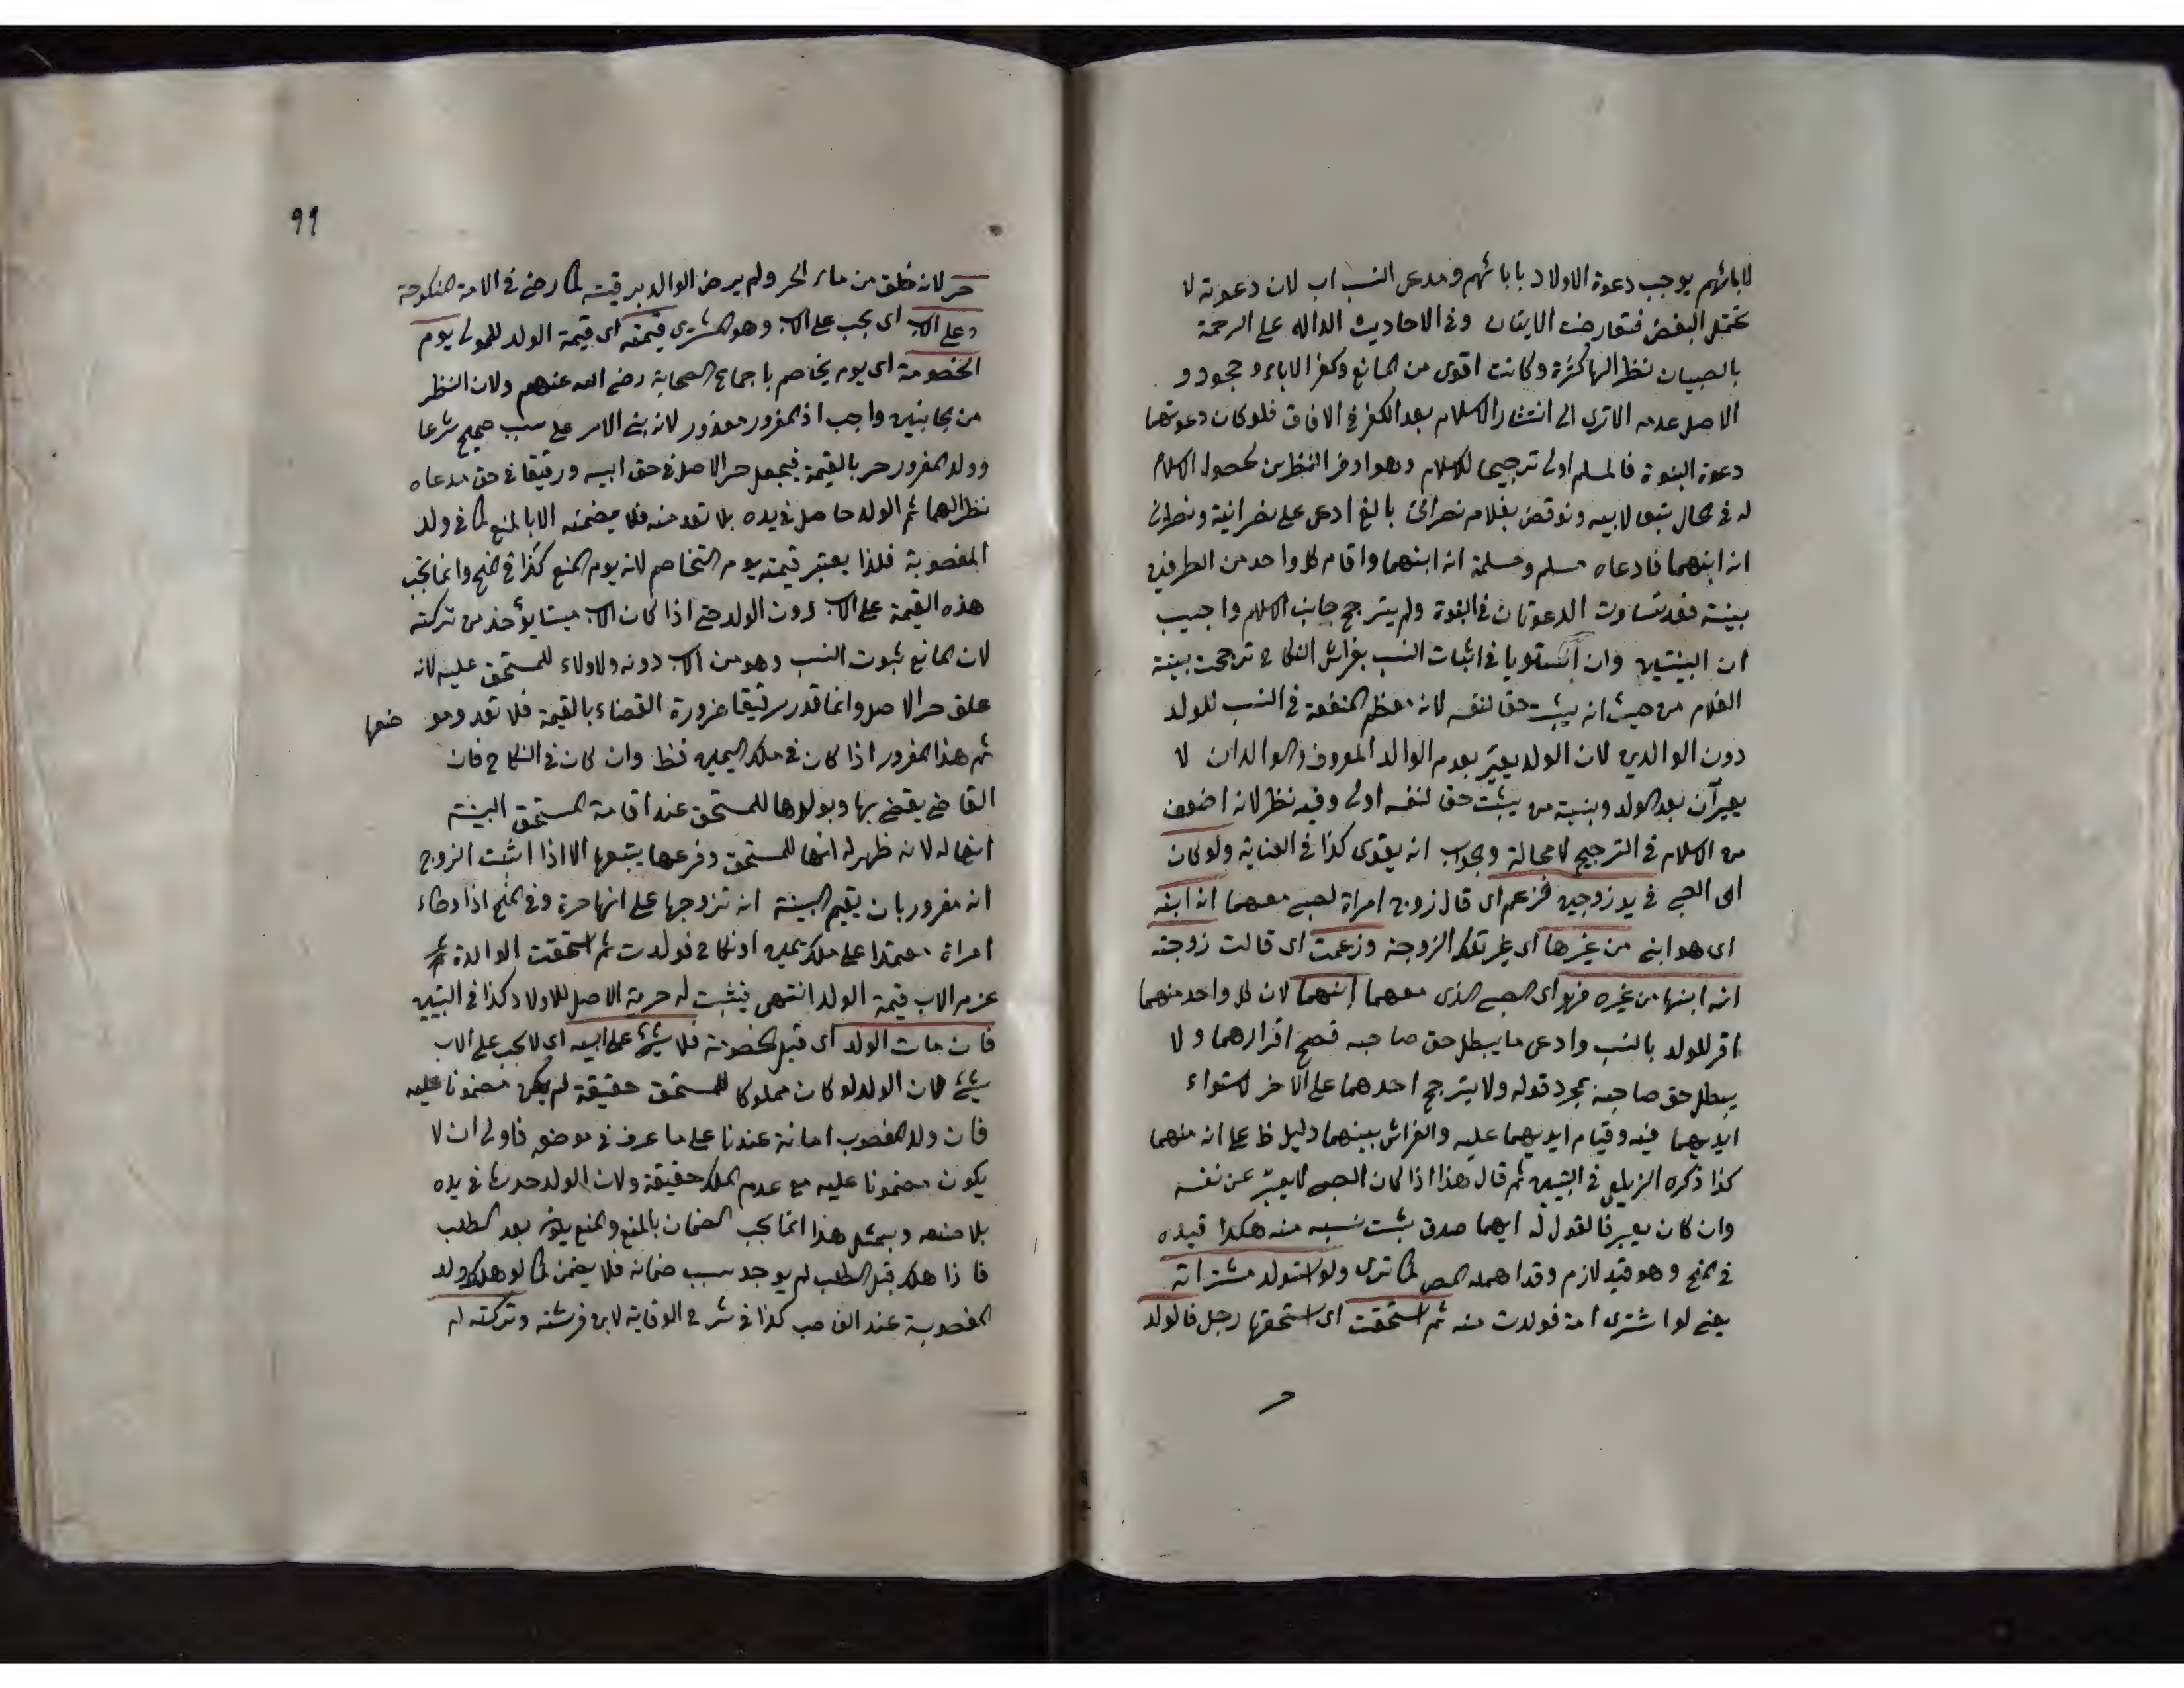 لابائهم يوجب دعوة الاولاد بابائهم ومدعى النسب اب لان دعوته لا
تحتمل النقض فتعارضت الايتان وفى الاحاديث الداله على الرحمة
بالصبيان نظرا لها كثرة وكانت اقوى من المانع وكفر الاباء وجحود و
الاصل عدمه الاترى الى انتشار الاسلام بعد الكفر فى الافاق فلو كان دعوتهما
دعوة البنوة فالمسلم اولى ترجيحا للاسلام وهو اوفر النظرين لحصول الاسلام
له فى الحال تبعا لابيه ونوقض بغلام نصرانى بالغ ادعى على نصرانية ونصرانى
انه ابنهما فادعاه مسلم ومسلمة انه ابنهما واقام كل واحد من الطرفين
بينة فقد تساوت الدعوتان فى البنوة ولم يترجح جانب الاسلام واجيب
ان البينتين وان استويا فى اثبات النسب بفراش النكاح ترجحت بينة
الغلام من حيث انه يثبت حق لنفسه لانه معظم المنفعة فى النسب للولد
دون الوالدين لان الولد يعيّر بعدم الوالد المعروف والوالدان لا
يعيرآن بعد الولد وبنية من يثبت حق لنفسه اولى وفيه نظر لانه اضعف
من الاسلام فى الترجيح لا محالة وبجواب انه يقوى كذا فى العناية ولو كان
اى الصبى فى يد زوجين فزعم اى قال زوج امراة لصبى معهما انه ابنه
اى هو ابنى من غيرها اى غير تلك الزوجة وزعمت اى قالت زوجته
انه ابنها من غيره فهو اى الصبى الذى معهما ابنهما لان كل واحد منهما
اقر للولد بالنسب وادعى ما يبطل حق صاحبه فصح اقرارهما ولا
يبطل حق صاحبه بمجرد قوله ولا يترجح احدهما على الاخر لاستواء
ايديهما فيه وقيام ايديهما عليه والفراش بينهما دليل ظ على انه منهما
كذا ذكره الزيلعى فى التبيين ثم قال هذا اذا كان الصبى لا يعبّر عن نفسه
وان كان يعبر فالقول له ايهما صدق يثبت نسبه منه هكذا قيده
فى المنح وهو قيد لازم وقد اهمله المص كما ترى ولو استولد مشتراته
يعنى لو اشترى امة فولدت منه ثم استحقت اى استحقها رجل فالولد
حر
٩٩
حر لانه خلق من ماء الحر ولم يرض الوالد برقيته كما رضى فى الامة المنكوحة
وعلى الاب اى يجب على الاب وهو المشترى قيمته اى قيمة الولد للمولى يوم
الخصومة اى يوم يخاصم باجماع الصحابة رضى الله عنهم ولان النظر
من الجانبين واجب اذ المغرور معذور لانه بنى الامر على سبب صحيح شرعا
وولد المغرور حر بالقيمة فيجعل حر الاصل فى حق ابيه ورقيقا فى حق مدعاه
نظرا لهما ثم الولد حاصل فى يده بلا تعد منه فلا يضمنه الا بالمنع كما فى ولد
المغصوبة فلذا يعتبر قيمته يوم التخاصم لانه يوم المنع كذا فى المنح وانما يجب
هذه القيمة على الاب دون الولد حتى اذا كان الاب ميتا يؤخذ من تركته
لان المانع ثبوت النسب وهو من الاب دونه ولا ولاء للمستحق عليه لانه
علق حر الاصل وانما قدر رقيقا ضرورة القضاء بالقيمة فلا تعد وهو ضعها
ثم هذا المغرور اذا كان فى ملك اليمين فظ وان كان فى النكاح فان
القاضى يقضى بها وبولدها للمستحق عند اقامة المستحق البينة
انها له لانه ظهر له انها للمستحق وفرعها يتبعها الا اذا اثبت الزوج
انه مغرور بان يقيم البينة انه تزوجها على انها حرة وفى المنح اذا وطاء
امراة معتمدا على ملك يمين او نكاح فولدت ثم استحقت الوالدة
غرم الاب قيمة الولد انتهى فيثبت له حرية الاصل للاولاد كذا فى التبيين
فان مات الولد اى قبل الخصومة فلا شئ على ابيه اى لا يجب على الاب
شئ لان الولد لو كان مملوكا للمستحق حقيقة لم يكن مضمونا عليه
فان ولد المغصوب امانة عندنا على ما عرف فى موضعه فاولى ان لا
يكون مضمونا عليه مع عدم الملك حقيقة ولان الولد حدث فى يده
بلا صنعه وبمثل هذا انما يجب الضمان بالمنع والمنع يكون بعد الطلب
فاذا هلك قبل الطلب لم يوجد سبب ضمانه فلا يضمن كما لو هلك ولد
المغصوبة عند الغاصب كذا فى شرح الوقاية لابن فرشته وتركته له